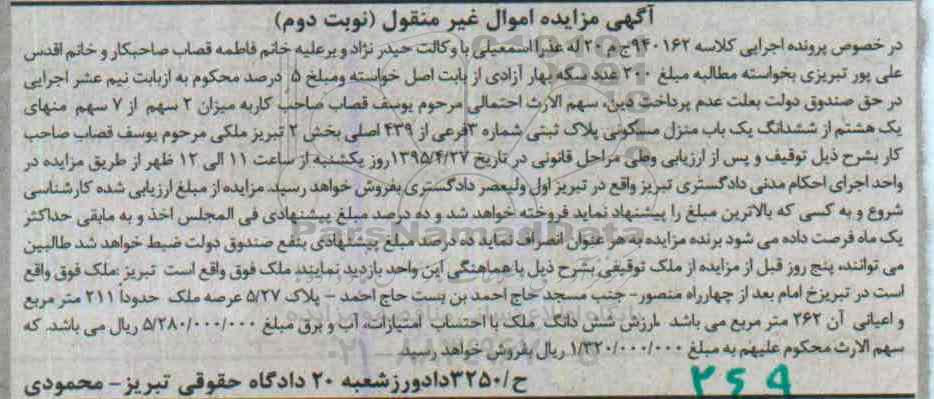 آگهی مزایده اموال غیر منقول (نوبت دوم)
در خصوص پرونده اجرایی کلاسه ۹۴۰۱۶۲ج م ۲۰ له عذرا اسمعیلی با وکالت حیدر نژاد و برعلیه خانم فاطمه قصاب صاحبکار و خانم اقدس
علی پور تبریزی بخواسته مطالبه مبلغ ۲۰۰ عدد سکه بهار آزادی از بابت اصل خواسته ومبلغ ۵ درصد محکوم به ازبابت نیم عشر اجرایی
در حق صندوق دولت بعلت عدم پرداخت دین، سهم الارث احتمالی مرحوم یوسف قصاب صاحب کاربه میزان ۲ سهم از ۷ سهم منهای
یک هشتم از ششدانگ یک باب منزل مسکونی پلاک ثبتی شماره ۳فرعی از ۴۳۹ اصلی بخش ۲ تبریز ملکی مرحوم یوسف قصاب صاحب
کار بشرح ذیل توقیف و پس از ارزیابی وطی مراحل قانونی در تاریخ ۱۳۹۵/۴/۲۷روز یکشنبه از ساعت ۱۱ الی ۱۲ ظهر از طریق مزایده در
واحد اجرای احکام مدنی دادگستری تبریز واقع در تبریز اول ولیعصر دادگستری بفروش خواهد رسید. مزایده از مبلغ ارزیابی شده کارشناسی
شروع و به کسی که بالاترین مبلغ را پیشنهاد نماید فروخته خواهد شد و ده درصد مبلغ پیشنهادی فی المجلس اخذ و به مابقی حداکثر
یک ماه فرصت داده می شود برنده مزایده به هر عنوان انصراف نماید ده درصد مبلغ پیشنهادی بنفع صندوق دولت ضبط خواهد شد طالبین
می توانند، پنج روز قبل از مزایده از ملک توقیفی بشرح ذیل با هماهنگی این واحد بازدید نمایند. ملک فوق واقع است تبریز ملک فوق واقع
است در تبریزخ امام بعد از چهارراه منصور- جنب مسجد حاج احمد بن بست حاج احمد - پلاک ۵/۲۷ عرصه ملک حدوداً ۲۱۱ متر مربع
و اعیانی آن ۲۶۲ متر مربع می باشد .ارزش شش دانگ ملک با احتساب امتیازات، آب و برق مبلغ ۵/۲۸۰/۰۰۰/۰۰۰ ریال می باشد. که
سهم الارث محکوم علیهم به مبلغ ۱/۳۲۰/۰۰۰/۰۰۰ ریال بفروش خواهد رسید.
ح/۳۲۵۰دادورزشعبه ۲۰ دادگاه حقوقی تبریز- محمودی
۲۶۹
ParsNamadData